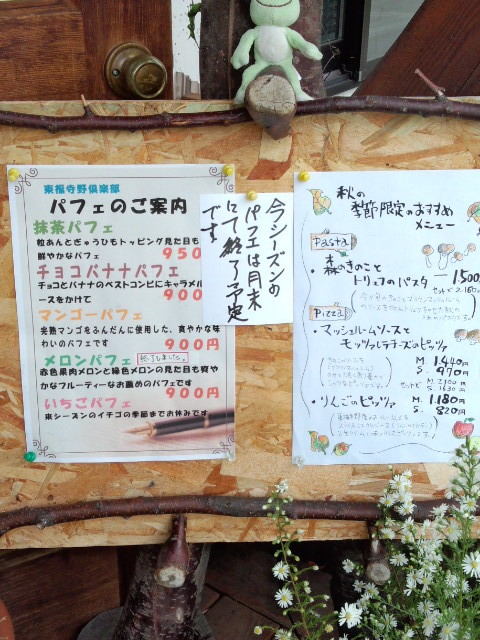 東福寺野倶楽部
パフェのご案内
抹茶パフェ
粒あんとぎゅうひもトッピング見た目も
鮮やかなパフェ 950
チョコバナナパフェ
チョコとバナナのベストコンビにキャラメル
ースをかけて 900
マンゴーパフェ
完熟マンゴをふんだんに使用した、爽やかな味
わいのパフェです 900円
メロンパフェ
赤色果肉メロンと緑色メロンの見た目も爽や
かなフルーティーなお薦めのパフェです
900円
いちごパフェ
来シーズンのイチゴの季節までお休みです
今シーズンの
パフェは月末
にて終了予定
です
秋の
季節限定のおすすめ
メニュー
Pasta
・森のきのこと
トリュフのパスタ 1500
セット 2.160
Pizza
・マッシュルームソースと
モッツァレラチーズのピッツァ
M. 1.440円
S. 970円
セット M. 2.100円
S. 1.630円
・りんごのピッツァ M. 1.180円
S. 820円